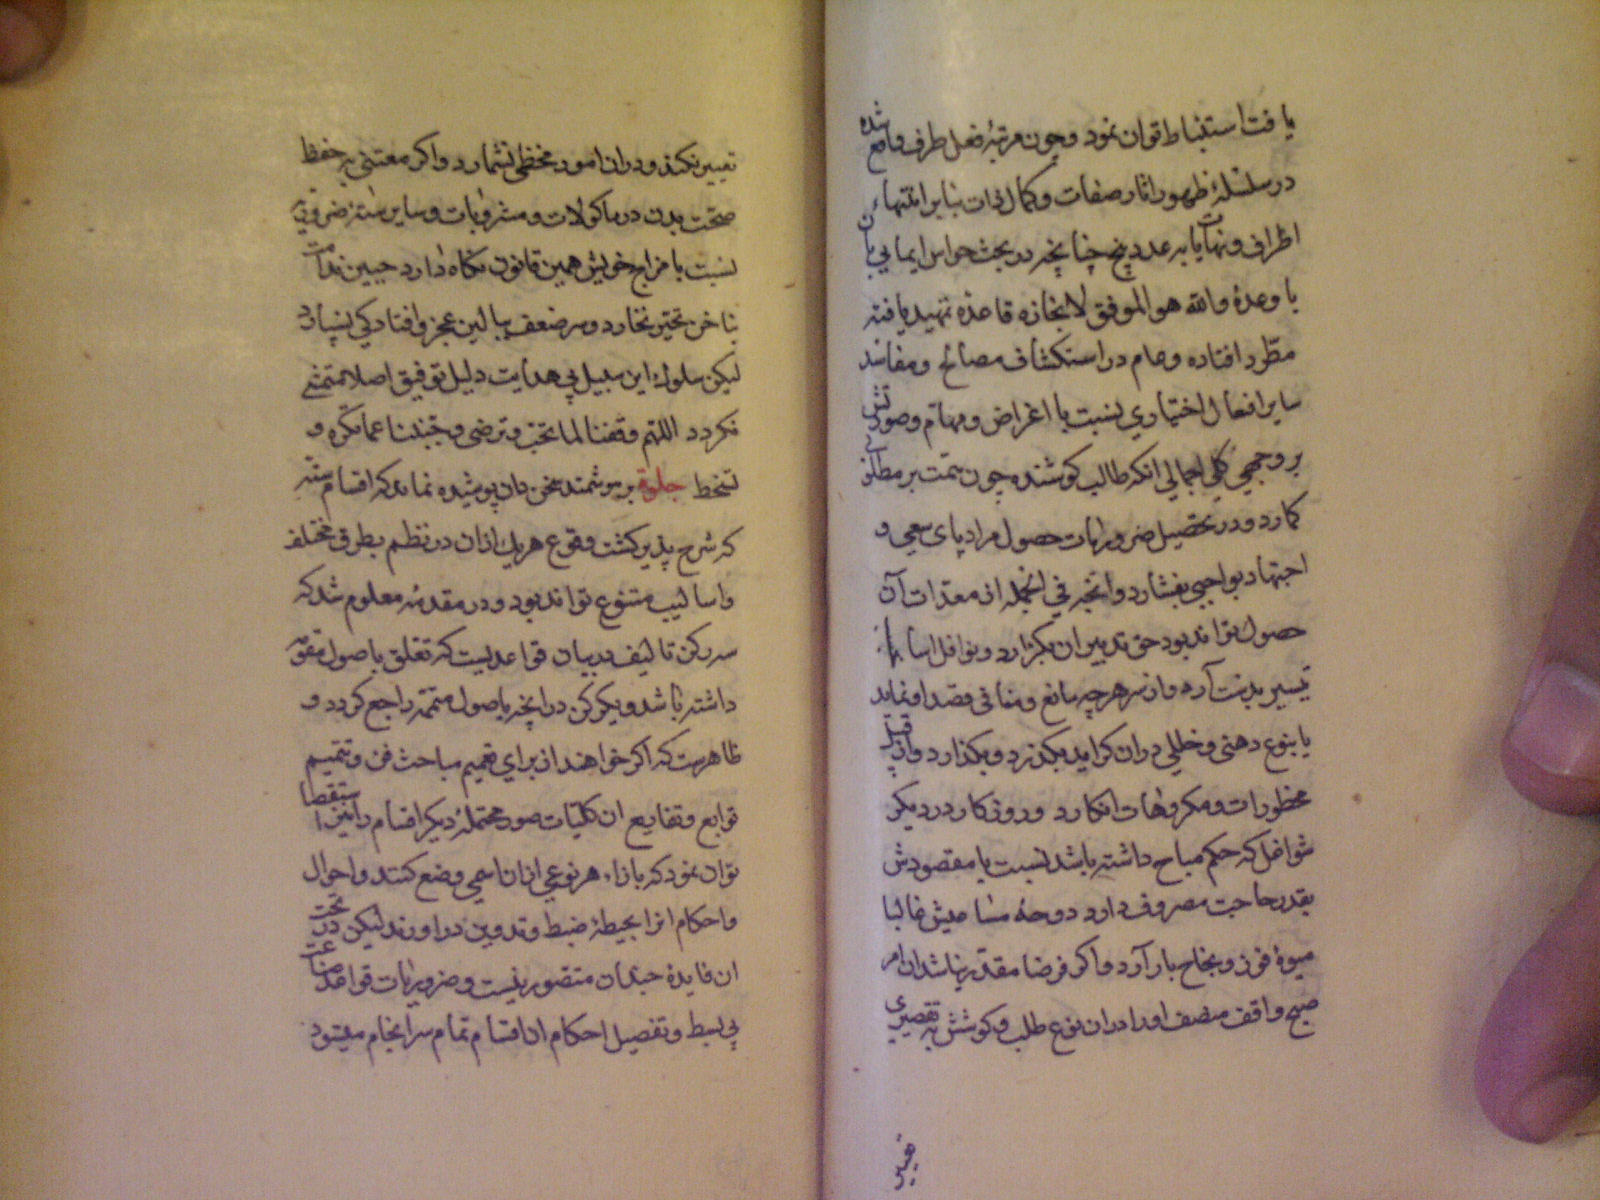 یافت استنباط توان نمود و چون مرتبهٔ فعل طرف واقع شده
در سلسلهٔ ظهور اثار صفات و کمال ذات بنابر انتهاء
اطراف و نهایات به عدد پنج چنانچه در بحث حواس ایمایی بان
با وعدهٔ والله هو الموفق لانجازه قاعده تمهید یافته
مطرد افتاده و عام در استکشاف مصالح و مفاسد
سایر افعال اختیاری نسبت با اغراض و مهام وصورتش
بر وجهی کلی اجمالی انکه طالب کوشنده چون همت بر مطلوبی
کمارد و در تحصیل ضروریات حصول مراد پای سعی و
اجتهاد بواجبی بفشارد و انچه فی الجمله از معدات آن
حصول تواند بود حق تدبیر ان بکزارد و نوافل اسا بها
تیسیر بدست آرد و از سر هرچه مانع و منافی قصد او نماید
یا بنوع دهنی و خللی دران کراید بکذرد و بکذارد و از قبیل
محظورات و مکروهات انکارد و روزکار در دیکر
شواغل که حکم مباح داشته باشد نسبت با مقصودش
بقدر حاجت مصروف دارد دوحهٔ مساعیش غالبا
میوهٔ فوز و نجاح بار آرد و اکر فرضا مقدر نباشد ان امر
هیچ واقف منصف او را دران نوع طلب و کوشش به تقصیری
تعیین نکند و دران امور مخطی نشمارد و اکر معتنی به حفظ
صحت بدن در ماکولات و مشروبات و سایر ستهٔ ضروریه
نسبت با مزاج خویش همین قانون نکاه دارد جبین ندامت
بناخن تحیر نخارد و سر ضعف ببالین عجز و افتادکی نسپارد
لیکن سلوک این سبیل بی هدایت دلیل توفیق اصلا متمشی
نکردد اللهم وفقنا لما تحب و ترضی و جنبنا عما تکره و
تسخط جلوة بر هوشمند سخن دان پوشیده نماند که اقسام سته
که شرح پذیر کشت وقوع هر یک ازان در نظم بطرق مختلفه
و اسالیب متنوع تواند بود و در مقدمه معلوم شد که
سه رکن تالیف در بیان قواعدیست که تعلق باصول مقومه
داشته باشد و یک رکن در انچه باصول متممه راجع کردد و
ظاهرست که اکر خواهند از برای تعمیم مباحث فن و تتمیم
توابع و تفاریع ان کلیات صور محتملهٔ دیکر اقسام را نیز استقصا
توان نمود که بازاء هر نوعی ازان اسمی وضع کنند و احوال
و احکام انرا بحیطهٔ ضبط و تدوین در اورند لیکن در تحت
ان فایدهٔ چندان متصور نیست و ضروریات قواعد صناعت
بی بسط و تفصیل احکام ان اقسام تمام سرانجام میشود